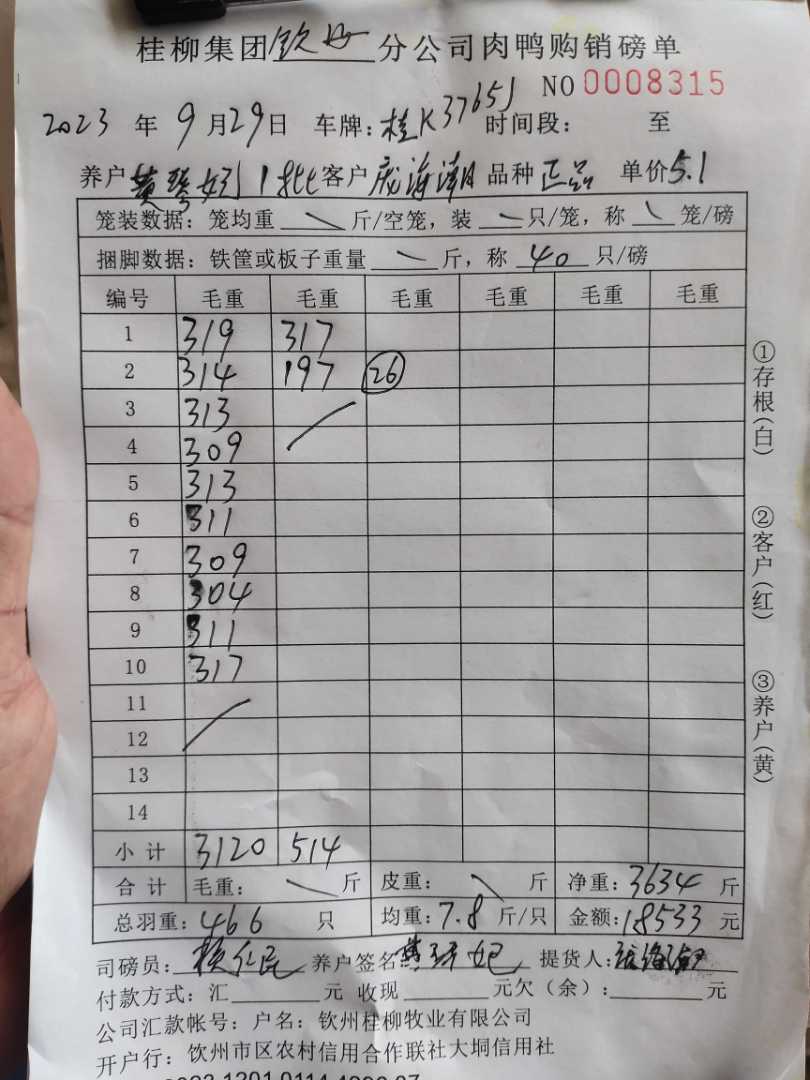 桂柳集团钦州分公司肉鸭购销磅单
NO 0008315
2023 年 9 月 29 日 车牌: 桂K3765J 时间段: 至
养户 黄 1批 客户 庞海潮 品种 正品 单价 5.1
笼装数据: 笼均重 \ 斤/空笼, 装 \ 只/笼, 称 \ 笼/磅
捆脚数据: 铁筐或板子重量 \ 斤, 称 40 只/磅
编号 毛重 毛重 毛重 毛重 毛重 毛重
1 319 317
2 314 197 26
3 313
4 309
5 313
6 311
7 309
8 304
9 311
10 317
11
12
13
14
小计 3120 514
合计 毛重: \ 斤 皮重: \ 斤 净重: 3634 斤
总羽重: 466 只 均重: 7.8 斤/只 金额: 18533 元
司磅员: 养户签名 提货人:
付款方式: 汇 元 收现 元欠(余): 元
公司汇款帐号: 户名: 钦州桂柳牧业有限公司
开户行: 钦州市区农村信用合作联社大垌信用社
①存根(白)
②客户(红)
③养户(黄)